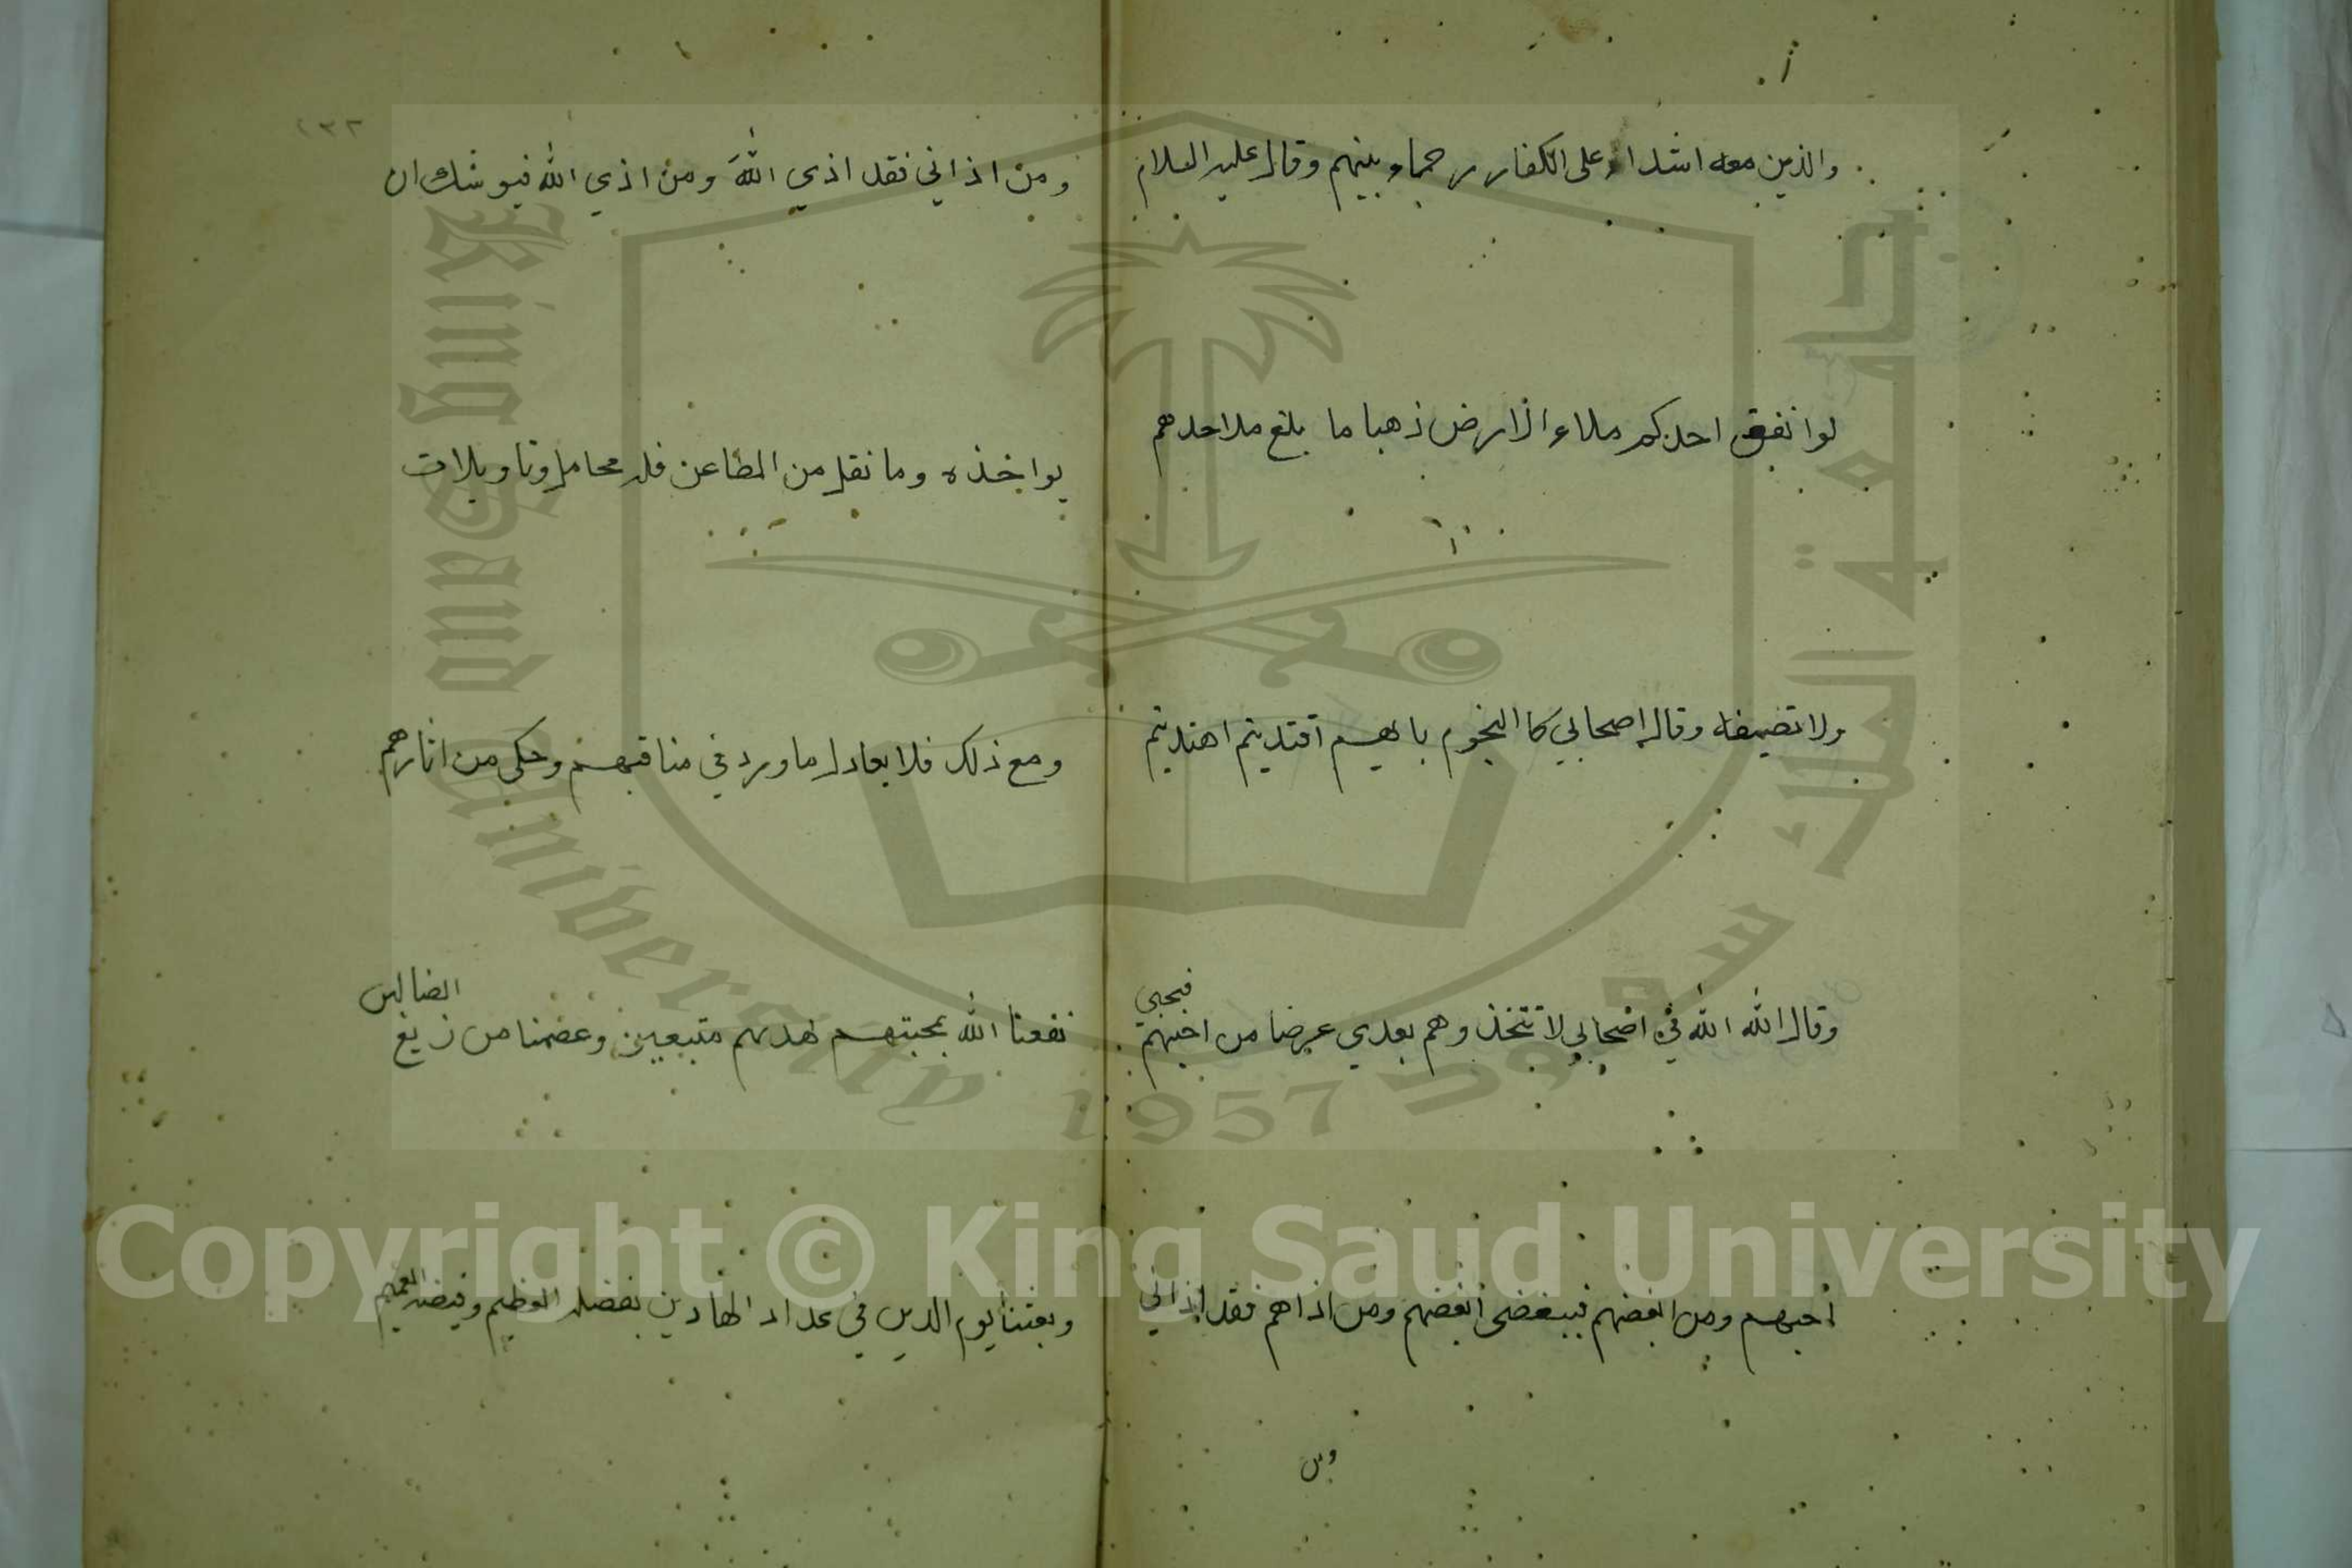 والذين معه اشداء على الكفار رحماء بينهم وقال عليه السلام
لو انفق احدكم ملاء الارض ذهبا ما بلغ مد احدهم
ولا نصيفه وقال اصحابي كا النجوم بايهم اقتديتم اهتديتم
وقال الله الله في اصحابي لا تتخذوهم بعدي عرضا من احبهم فبحبي
احبهم ومن ابغضهم فببغضى ابغضهم ومن اذاهم فقد اذاني
ومن
١٣٢
ومن اذاني فقد اذي الله ومن اذي الله فيوشك ان
يواخذه وما نقل من المطاعن فله محامل وتاويلات
ومع ذلك فلا يعادل ما ورد في مناقبهم وحكى من اثارهم
نفعنا الله بمحبتهم لهديهم متبعين وعصمنا من زيغ الضالين
وبعثنا يوم الدين في عداد الهادين بفضله العظيم وفيضه العميم
King Saud University 1957
جامعة الملك سعود
Copyright © King Saud University